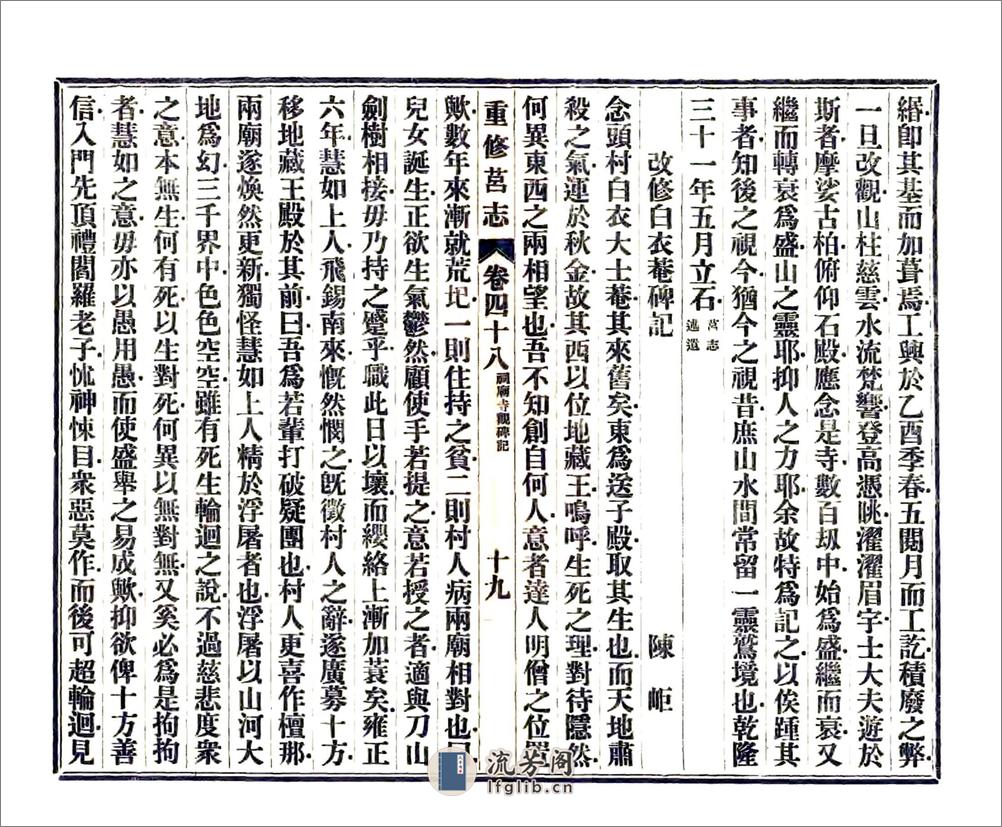 緡卽其基而加葺焉工興於乙酉季春五閱月而工訖積廢之弊
一旦改觀山柱慈雲水流梵響登高憑眺濯濯眉宇士大夫遊於
斯者摩娑古柏俯仰石殿應念是寺數百刼中始爲盛繼而衰又
繼而轉衰爲盛山之靈耶抑人之力耶余故特爲記之以俟踵其
事者知後之視今猶今之視昔庶山水間常留一靈鷲境也乾隆
三十一年五月立石 莒志述遺
改修白衣菴碑記 陳岠
念頭村白衣大士菴其來舊矣東爲送子殿取其生也而天地肅
殺之氣運於秋金故其西以位地藏王嗚呼生死之理對待隱然
何異東西之兩相望也吾不知創自何人意者達人明僧之位置
重修莒志 卷四十八 祠廟寺觀碑記 十九
歟數年來漸就荒圮一則住持之貧二則村人病兩廟相對也
兒女誕生正欲生氣鬱然顧使手若提之意若授之者適與刀山
劍樹相接毋乃持之蹙乎職此日以壞而纓絡上漸加蓑矣雍正
六年慧如上人飛錫南來慨然憫之旣徵村人之辭遂廣募十方
移地藏王殿於其前曰吾爲若輩打破疑團也村人更喜作檀那
兩廟遂煥然更新獨怪慧如上人精於浮屠者也浮屠以山河大
地爲幻三千界中色色空空雖有死生輪迴之說不過慈悲度衆
之意本無生何有死以生對死何異以無對無又奚必爲是拘拘
者慧如之意毋亦以愚用愚而使盛舉之易成歟抑欲俾十方善
信入門先頂禮閻羅老子怵神悚目衆惡莫作而後可超輪迴見
流芳阁
lfglib.cn